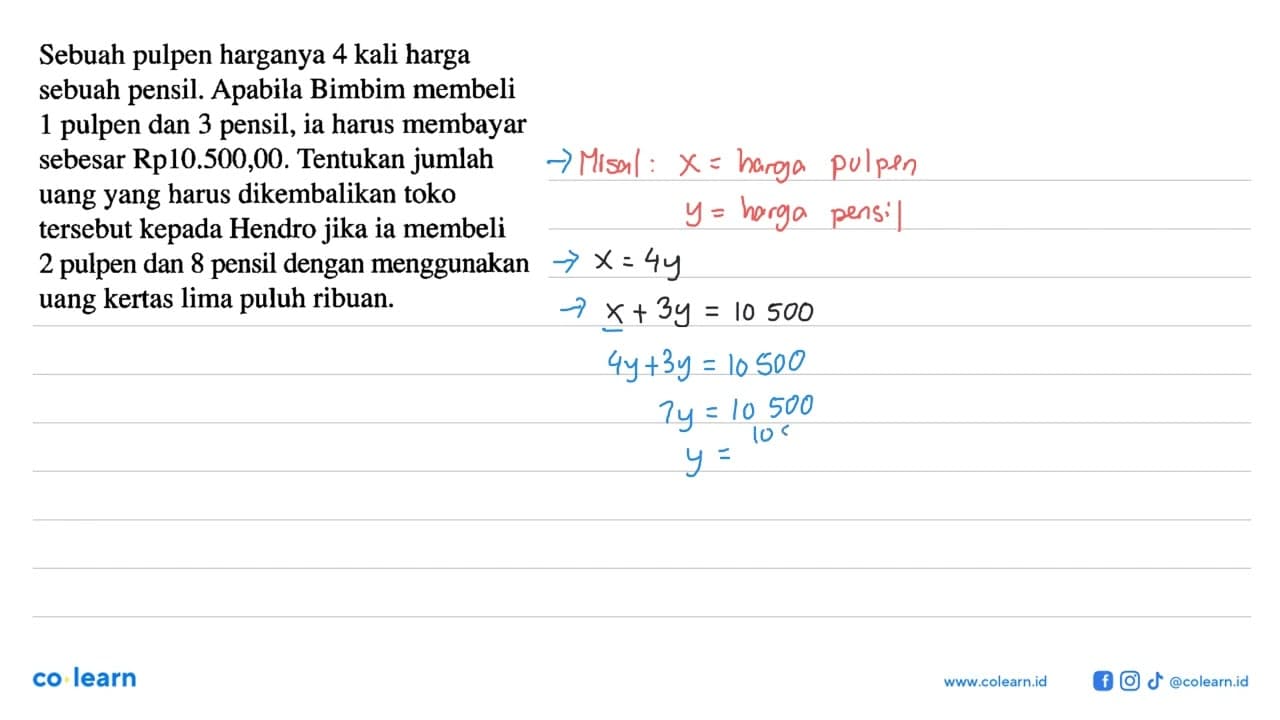 Sebuah pulpen harganya 4 kali harga
sebuah pensil. Apabila Bimbim membeli
1 pulpen dan 3 pensil, ia harus membayar
sebesar Rp10.500,00. Tentukan jumlah
uang yang harus dikembalikan toko
tersebut kepada Hendro jika ia membeli
2 pulpen dan 8 pensil dengan menggunakan
uang kertas lima puluh ribuan.
→ Misal : x = harga pulpen
y = harga pensil
→ x = 4y
→ x + 3y = 10 500
4y + 3y = 10 500
7y = 10 500
y =
co learn
www.colearn.id
@colearn.id